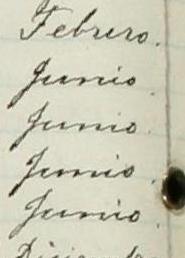 Febrero.
Junio.
Junio.
Junio.
Junio.